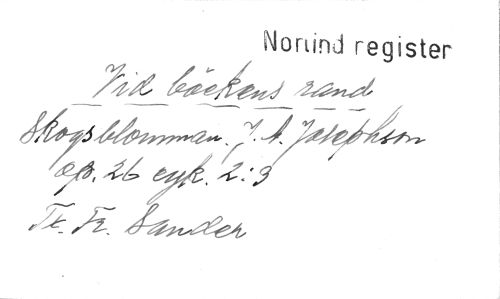 Norlind register
Vid bäckens rand
Skogsblomman. J. A. Josephson
op. 26 cyk. 2:3
Tx. Fr. Sander